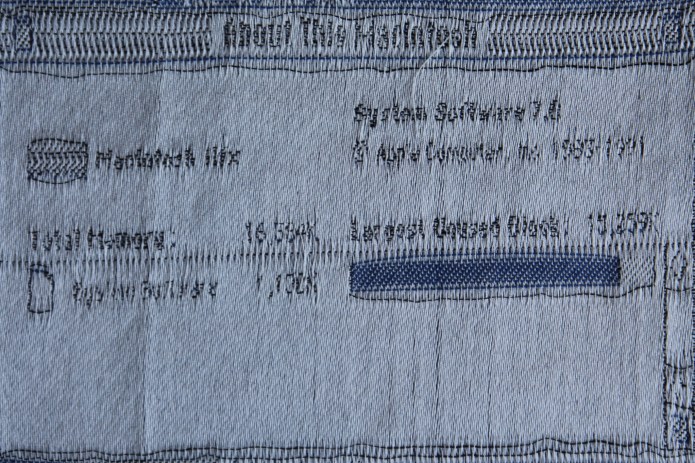 About This Macintosh
System Software 7.0
Macintosh IIfx
© Apple Computer, Inc. 1983-1991
Total Memory: 16,384K
Largest Unused Block: 15,259K
System Software